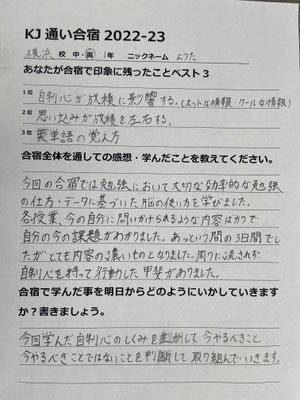 KJ 通い合宿 2022-23
横浜 校 中・高 1年 ニックネーム ようた
あなたが合宿で印象に残ったことベスト3
1位 自制心が成績に影響する。(ホットな情報・クールな情報)
2位 思い込みが成績を左右する。
3位 英単語の覚え方
合宿全体を通しての感想・学んだことを教えてください。
今回の合宿では勉強において大切な効率的な勉強
の仕方・データに基づいた脳の使い方を学びました。
各授業、今の自分に問いかけられるような内容ばかりで
自分の今の課題がわかりました。あっという間の3日間でし
たがとても内容の濃いものとなりました。周りに流されず
自制心を持って行動した甲斐がありました。
合宿で学んだ事を明日からどのようにいかしていきます
か?書きましょう。
今回学んだ自制心のしくみを して今やるべきこと
今やるべきことではないことを判断して取り組んでいきます。